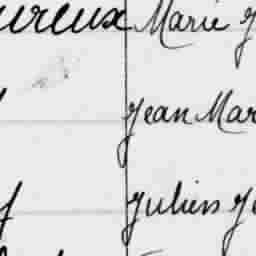 ureux Marie J
Jean Mar
Juliens Je